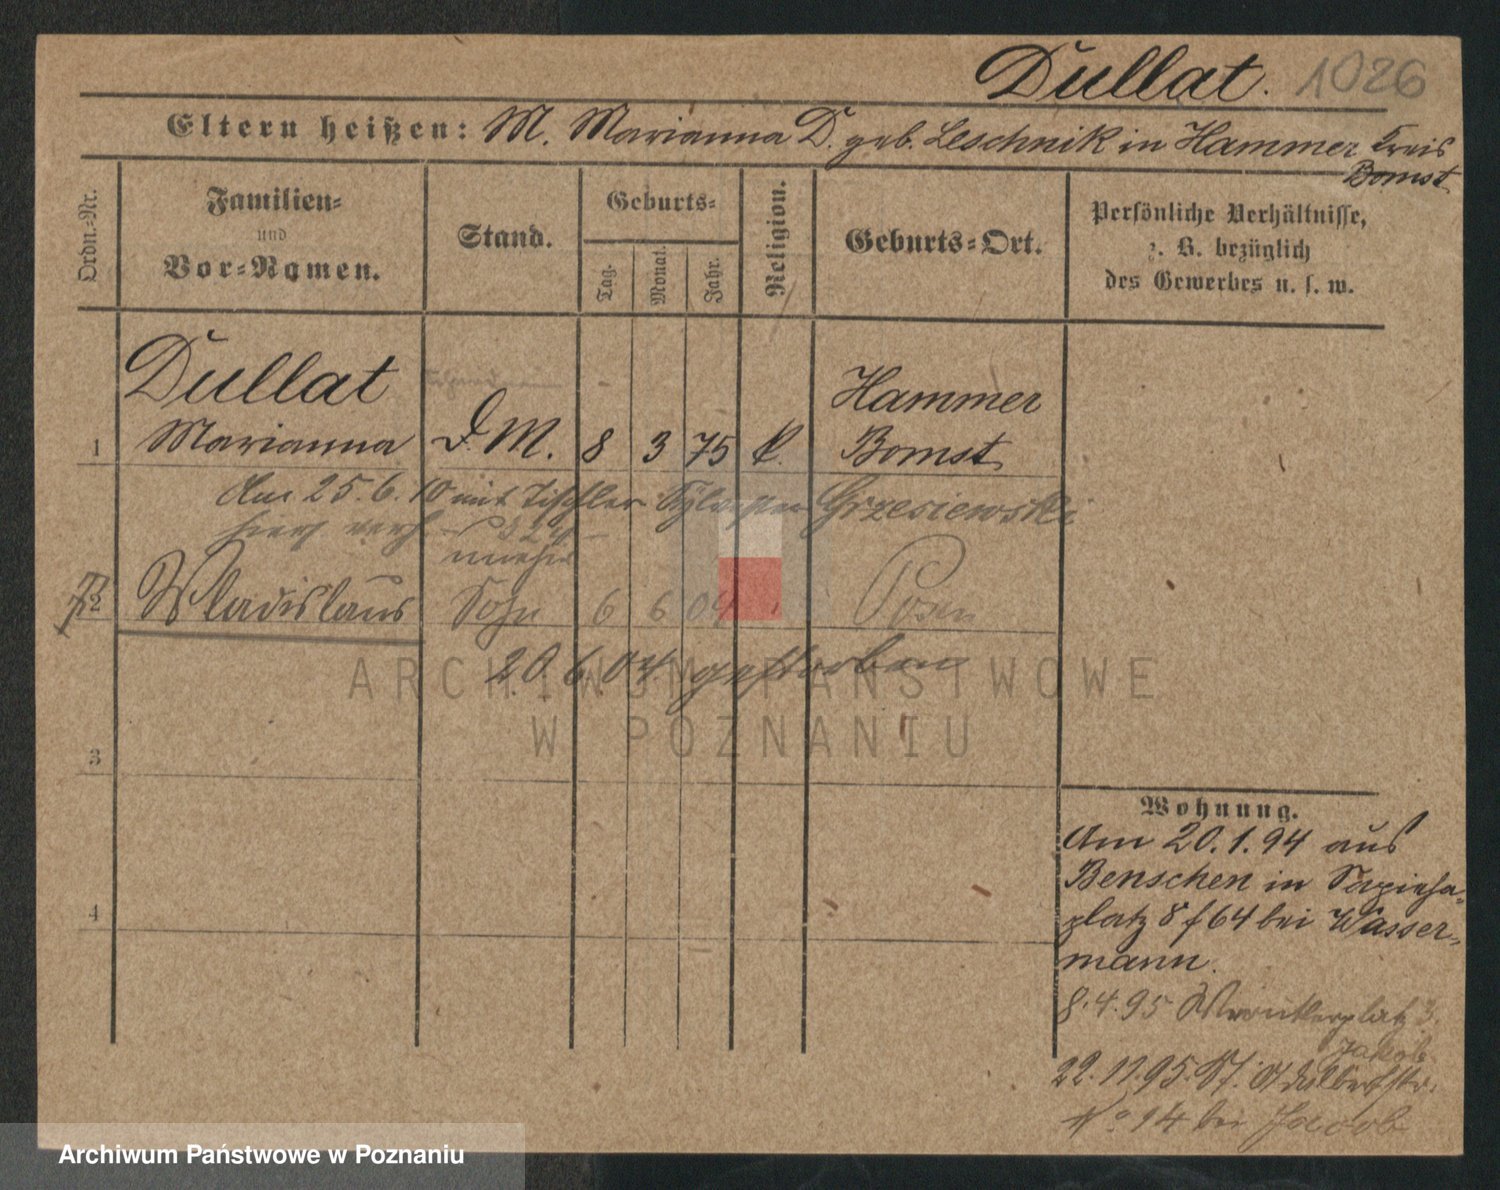 Dullat. 1026
Eltern heißen: M. Marianna D. geb. Leschnik in Hammer Kreis
Bomst
Ordn.=Nr.
Familien=
und
Vor=Namen.
Stand.
Geburts=
Tag.
Monat.
Jahr.
Religion.
Geburts=Ort.
Persönliche Verhältnisse,
z. B. bezüglich
des Gewerbes u. s. w.
Dullat Hammer
1 Marianna D. M. 8 3 75 k. Bomst
Am 25.6.10 mit Tischler Sylvester Grzesiewski
hier verh.
2 Wladislaus Sohn 6 6 04 Posen
20.6.04 gestorben
ARCHIWUM PAŃSTWOWE
W POZNANIU
3
4
Wohnung.
Am 20.1.94 aus
Benschen in Sapieha=
platz 8 f 64 bei Wasser=
mann.
8.4.95 platz 3.
Jakob
22.11.95. St. Adalbertstr.
No 14 bei Jacob
Archiwum Państwowe w Poznaniu